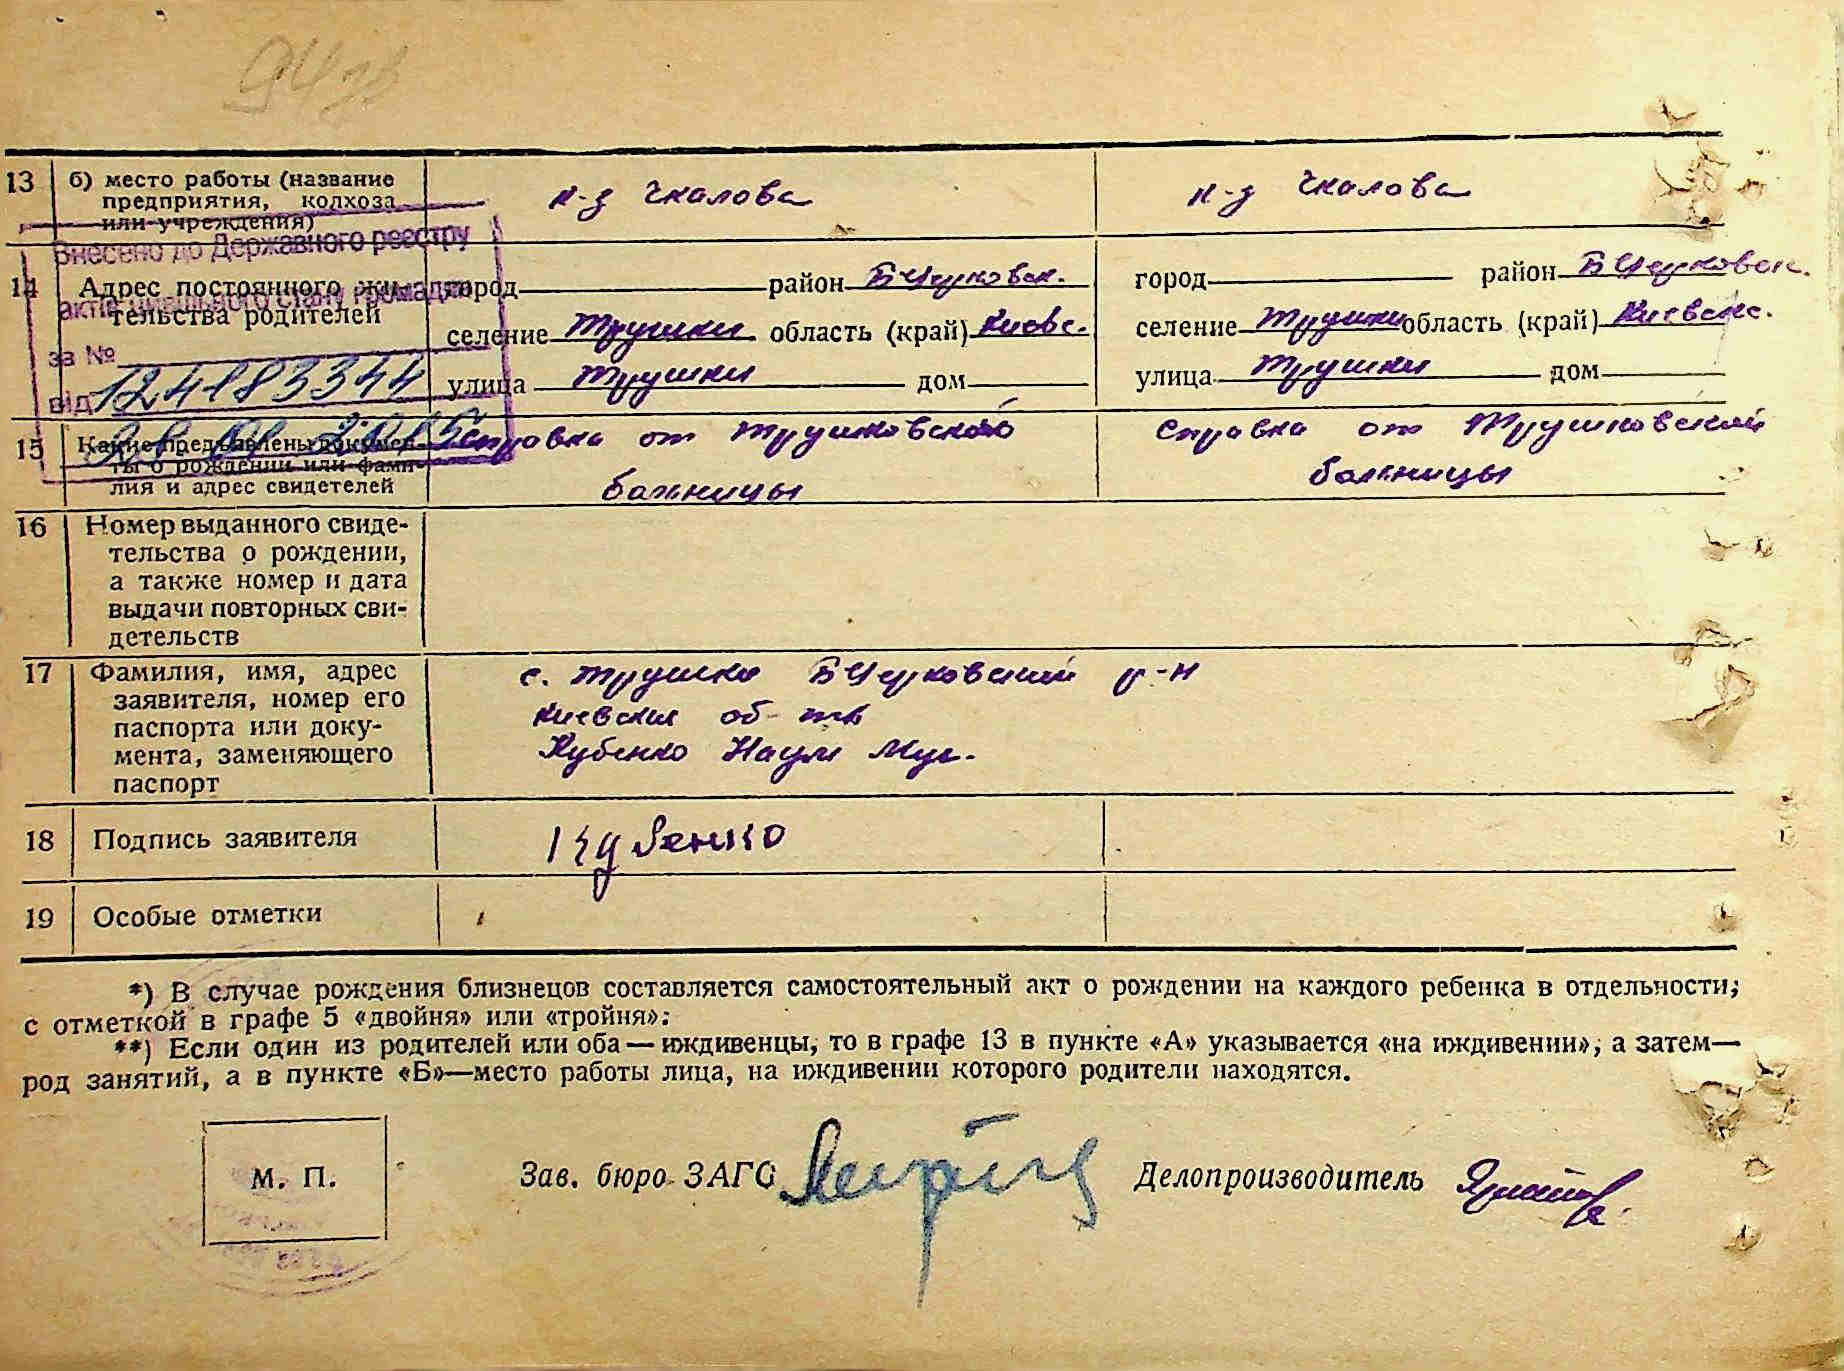 13 б) место работы (название предприятия, колхоза или учреждения) к-з Чкалова к-з Чкалова
Внесено до Державного реєстру
актів цивільного стану громадян
за № 124183344
від
14 Адрес постоянного жительства родителей
город район БЦерковск. город район БЦерковск.
селение Трушки область (край) Киевс. селение Трушки область (край) Киевск.
улица Трушки дом улица Трушки дом
15 Какие предъявлены документы о рождении или фамилия и адрес свидетелей
Справка от Трушковской Справка от Трушковской
больницы больницы
16 Номер выданного свиде-
тельства о рождении,
а также номер и дата
выдачи повторных сви-
детельств
17 Фамилия, имя, адрес
заявителя, номер его
паспорта или доку-
мента, заменяющего
паспорт
с. Трушки БЦерковский р-н
Киевская об-ть
Кубенко Наум
18 Подпись заявителя Кубенко
19 Особые отметки
*) В случае рождения близнецов составляется самостоятельный акт о рождении на каждого ребенка в отдельности;
с отметкой в графе 5 «двойня» или «тройня»:
**) Если один из родителей или оба — иждивенцы, то в графе 13 в пункте «А» указывается «на иждивении», а затем—
род занятий, а в пункте «Б»—место работы лица, на иждивении которого родители находятся.
М. П. Зав. бюро ЗАГС Делопроизводитель